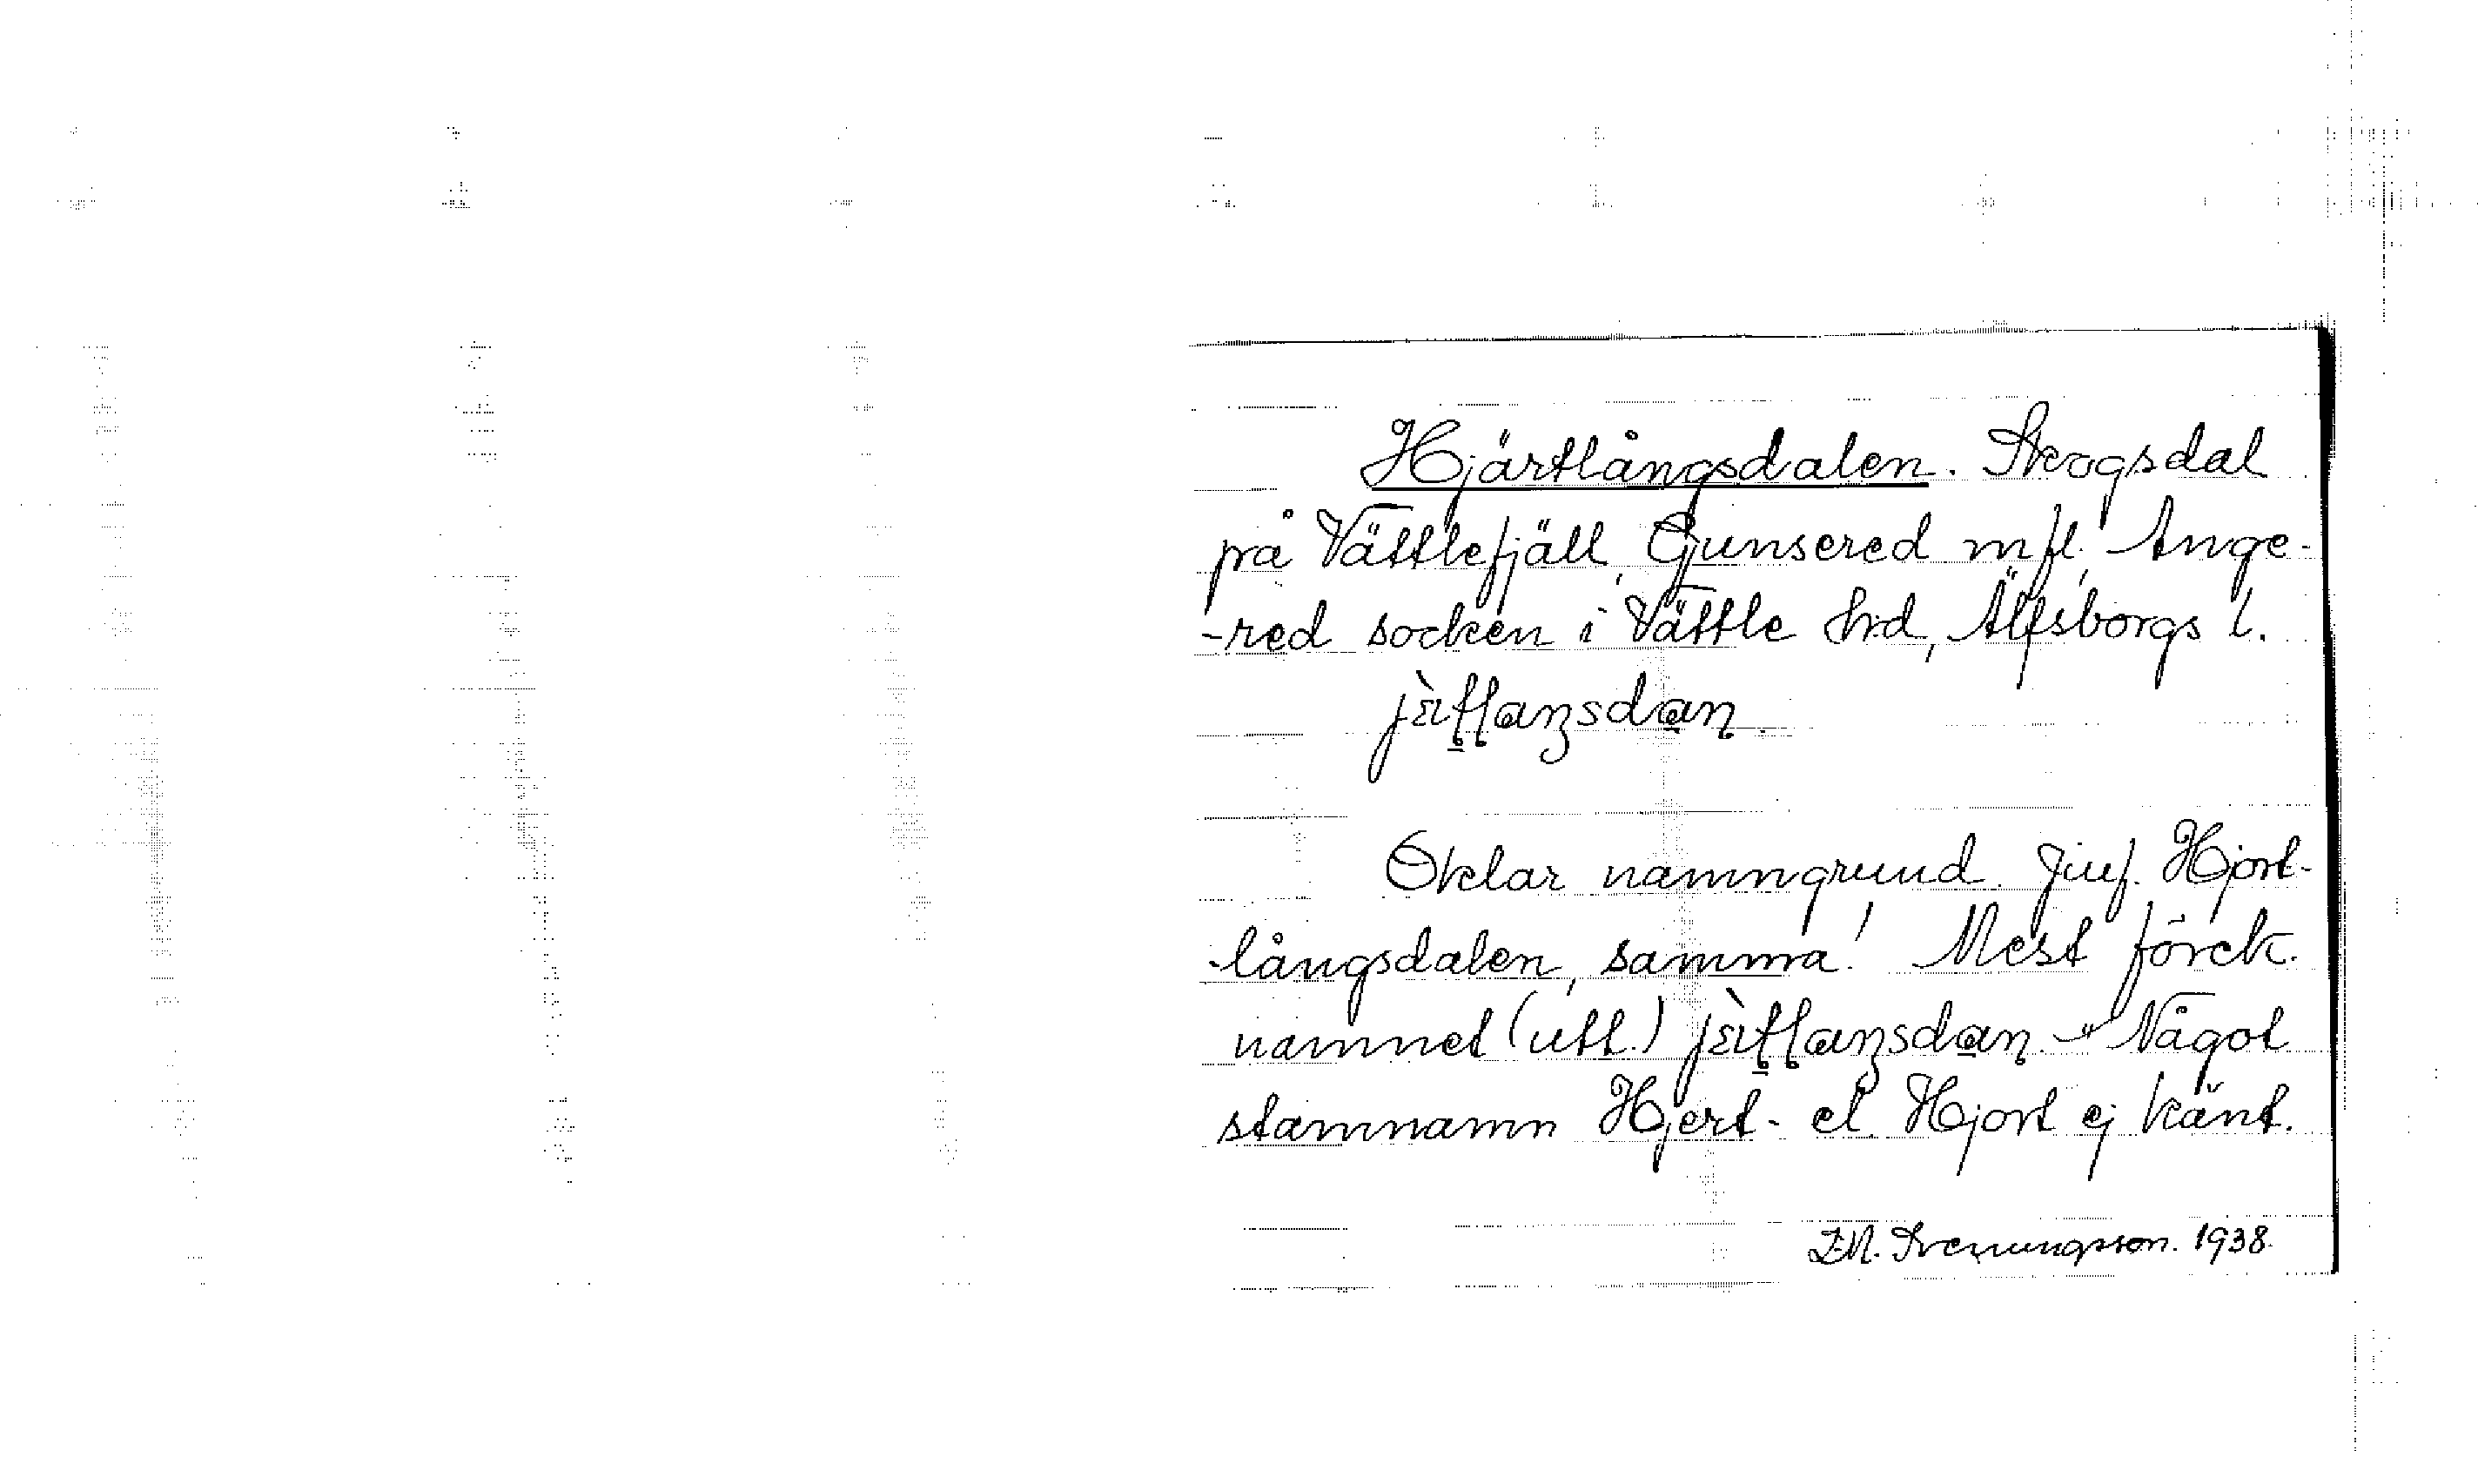 Hjärtlångsdalen. Skogsdal
på Vättlefjäll, Gunsered m fl., Ange-
-red socken i Vättle hrd, Älfsborgs l.
Oklar namngrund. Jmf. Hjort-
-långsdalen, samma! Mest förek.
namnet (utt.) Något
stamnamn Hjert- el. Hjort ej känt.
1938.